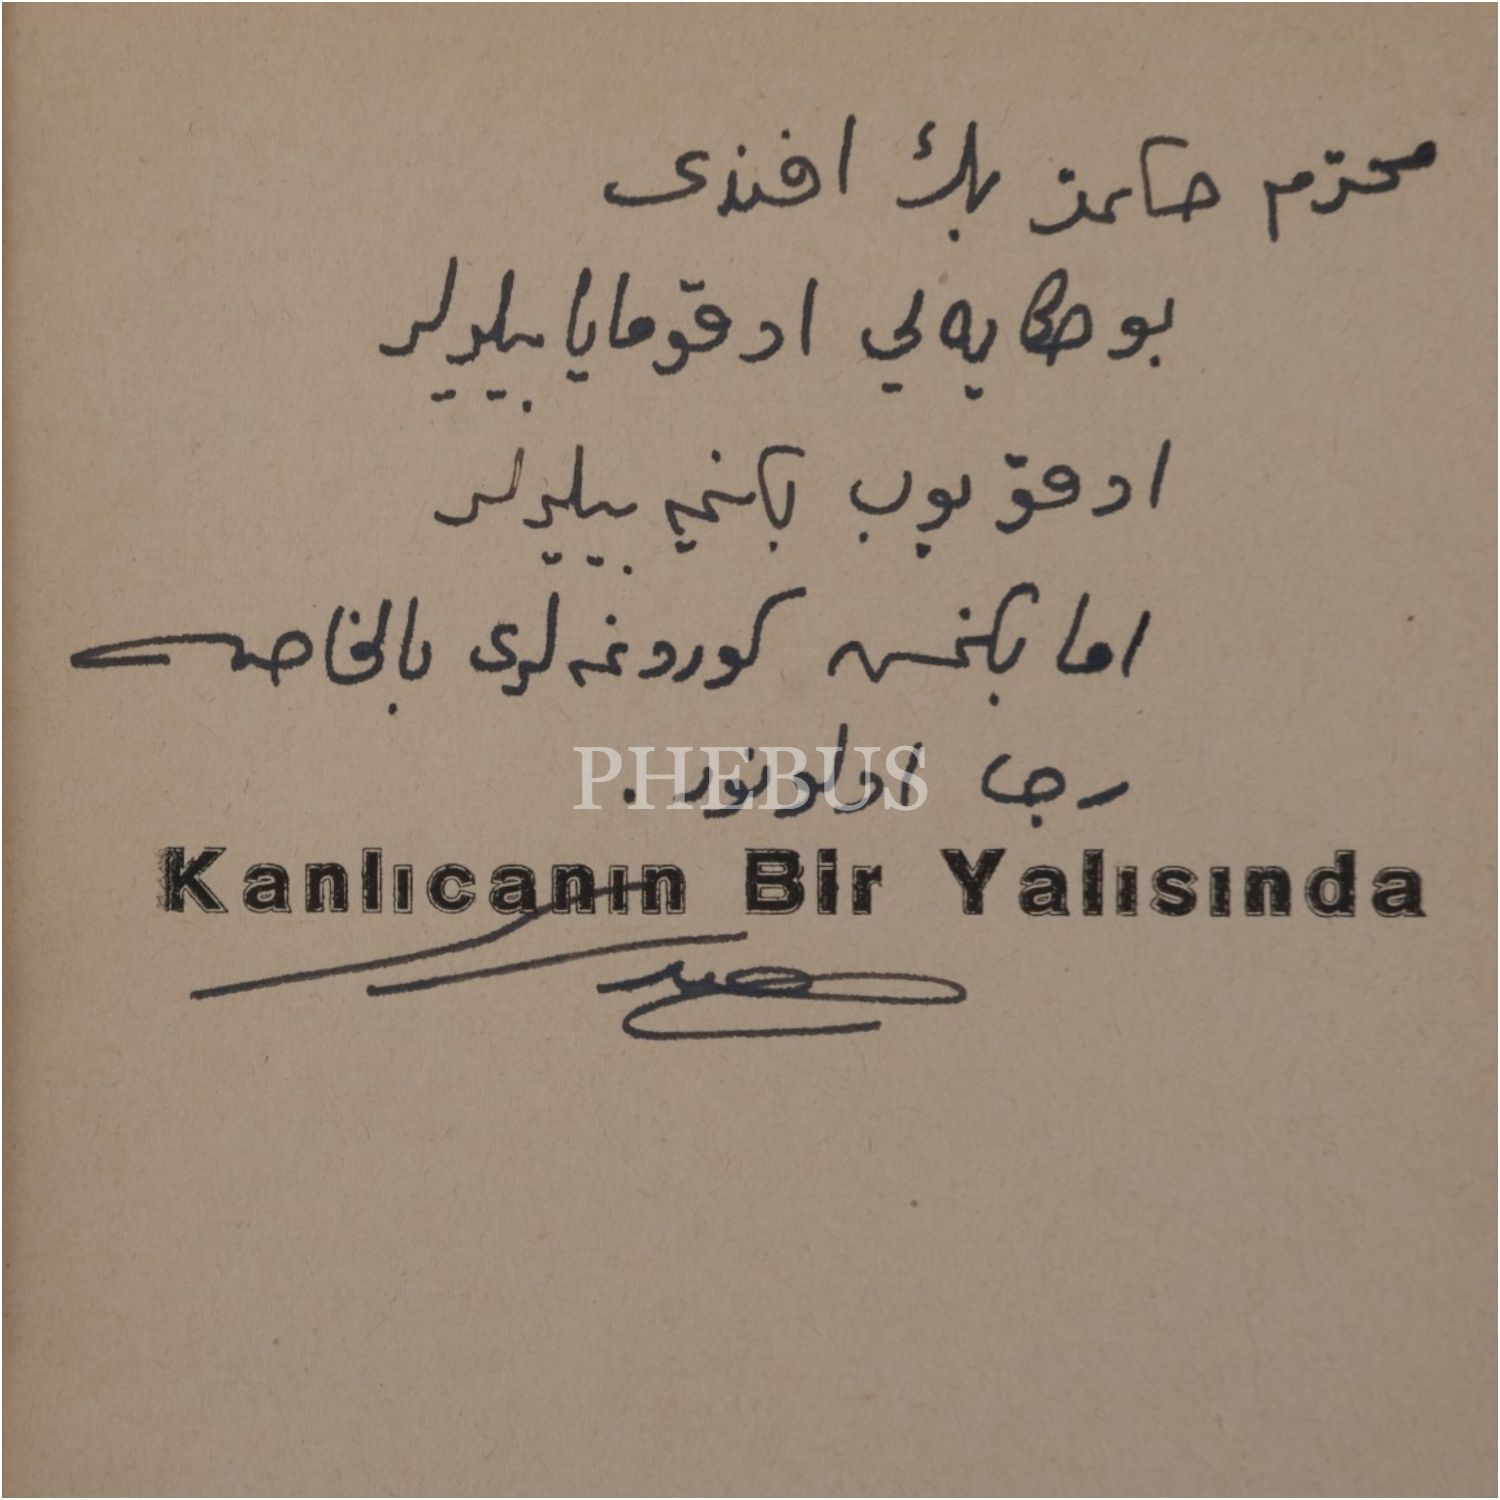 محترم حكمت بك افندى
بو حكايه لي اوقومايا بيليرلر
اوقويوب بكنميه بيليرلر
اما بكنمش كورونمه لرى بالخاصه
رجا اولونور.
PHEBUS
Kanlıcanın Bir Yalısında